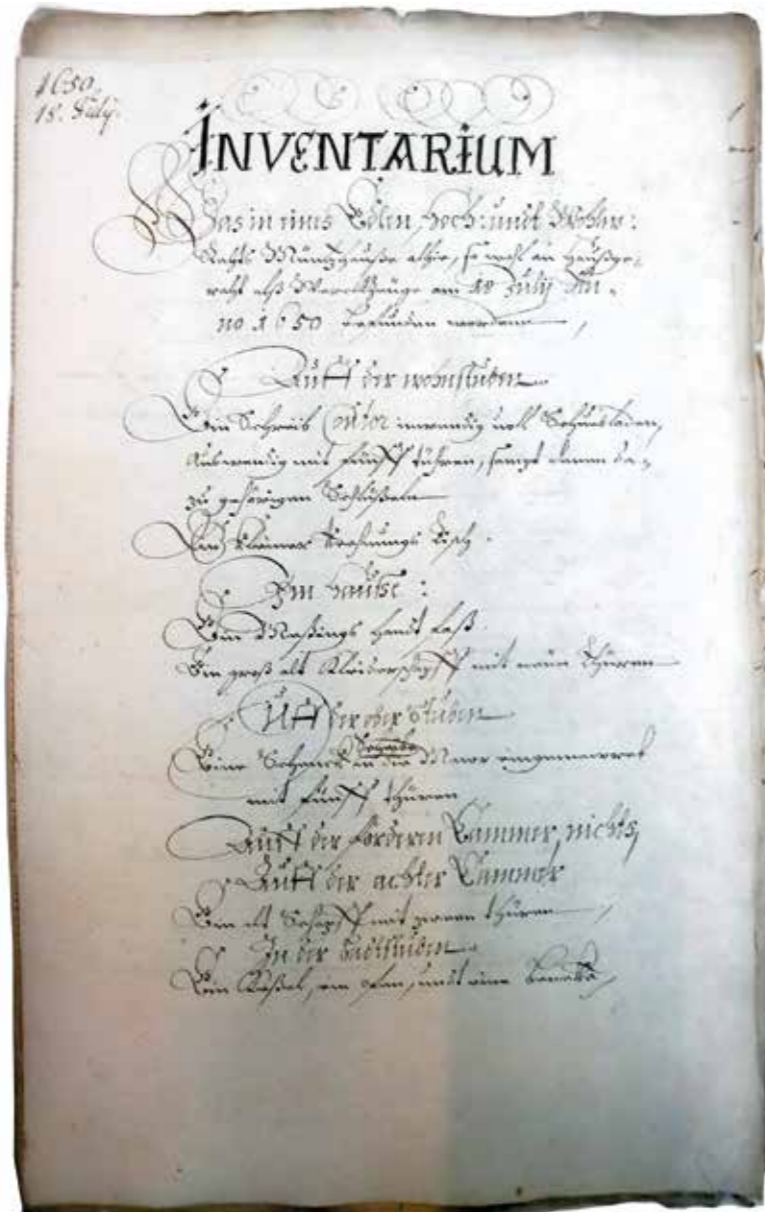 1650.
18. July.
INVENTARIUM
Was in eines Edlen, Hoch: undt Wohlw:
Rahts Müntzhause alhie, so wohl an Haußge-
raht alß Werckzeuge am 18 July An-
no 1650 befunden worden
Auff der wohnstuben
Ein Schreib Contor inwendig voll Schubladen,
Auswendig mit fünff tühren, sampt denen da-
zu gehörigen Schlüßeln
Ein kleiner Tisch.
Im Hause:
Ein Meßings Handt faß.
Ein groß alt Kleiderschapff mit neün Thüren
Uff der ober Stuben
Eine Schenck Scheibe in die Maur eingemauret
mit fünff thüren
Auff der förderen Cammer, nichts,
Auff der achter Cammer
Ein alt Schapff mit zween thüren
In der Badstuben
Ein Keßel, ein undt eine